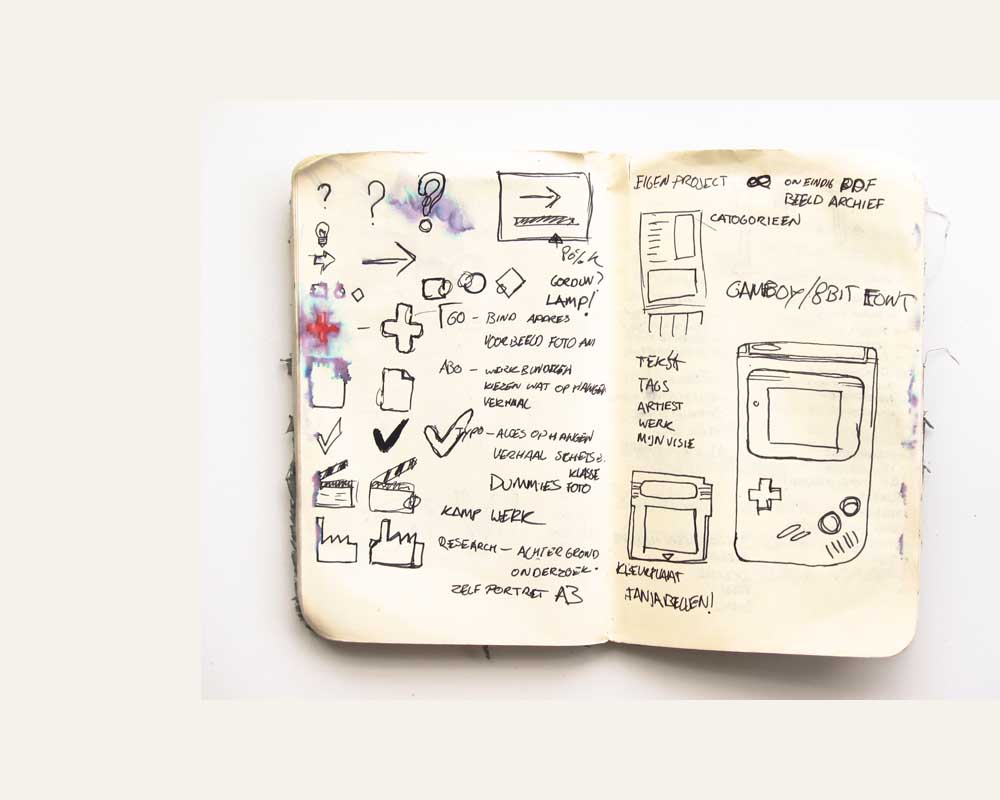 ? ? ?
GORDIJN?
LAMP!
GO - BIND ADRES
VOORBEELD FOTO
ABO - WERK BUNDELEN
KIEZEN WAT OPHANGEN
VERHAAL
TYPO - ALLES OPHANGEN
VERHAAL SCHETS
KLASSE
DUMMIES FOTO
KAMP WERK
RESEARCH - ACHTERGROND
ONDERZOEK.
ZELF PORTRET A3
EIGEN PROJECT ∞ ONEINDIG PDF
BEELD ARCHIEF
CATOGORIEEN
GAMBOY/8BIT FONT
TEKST
TAGS
ARTIEST
WERK
MIJN VISIE
KLEURPLAAT
TANJA BELLEN!